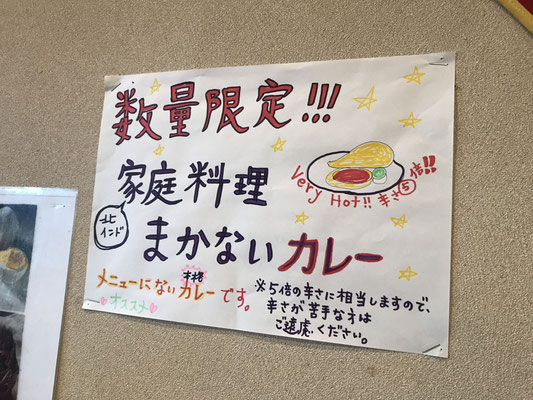 数量限定!!!
家庭料理
北インド
まかないカレー
Very Hot!! 辛さ⑤倍!!
メニューにない本格カレーです。
オススメ
※5倍の辛さに相当しますので、
辛さが苦手な方は
ご遠慮ください。